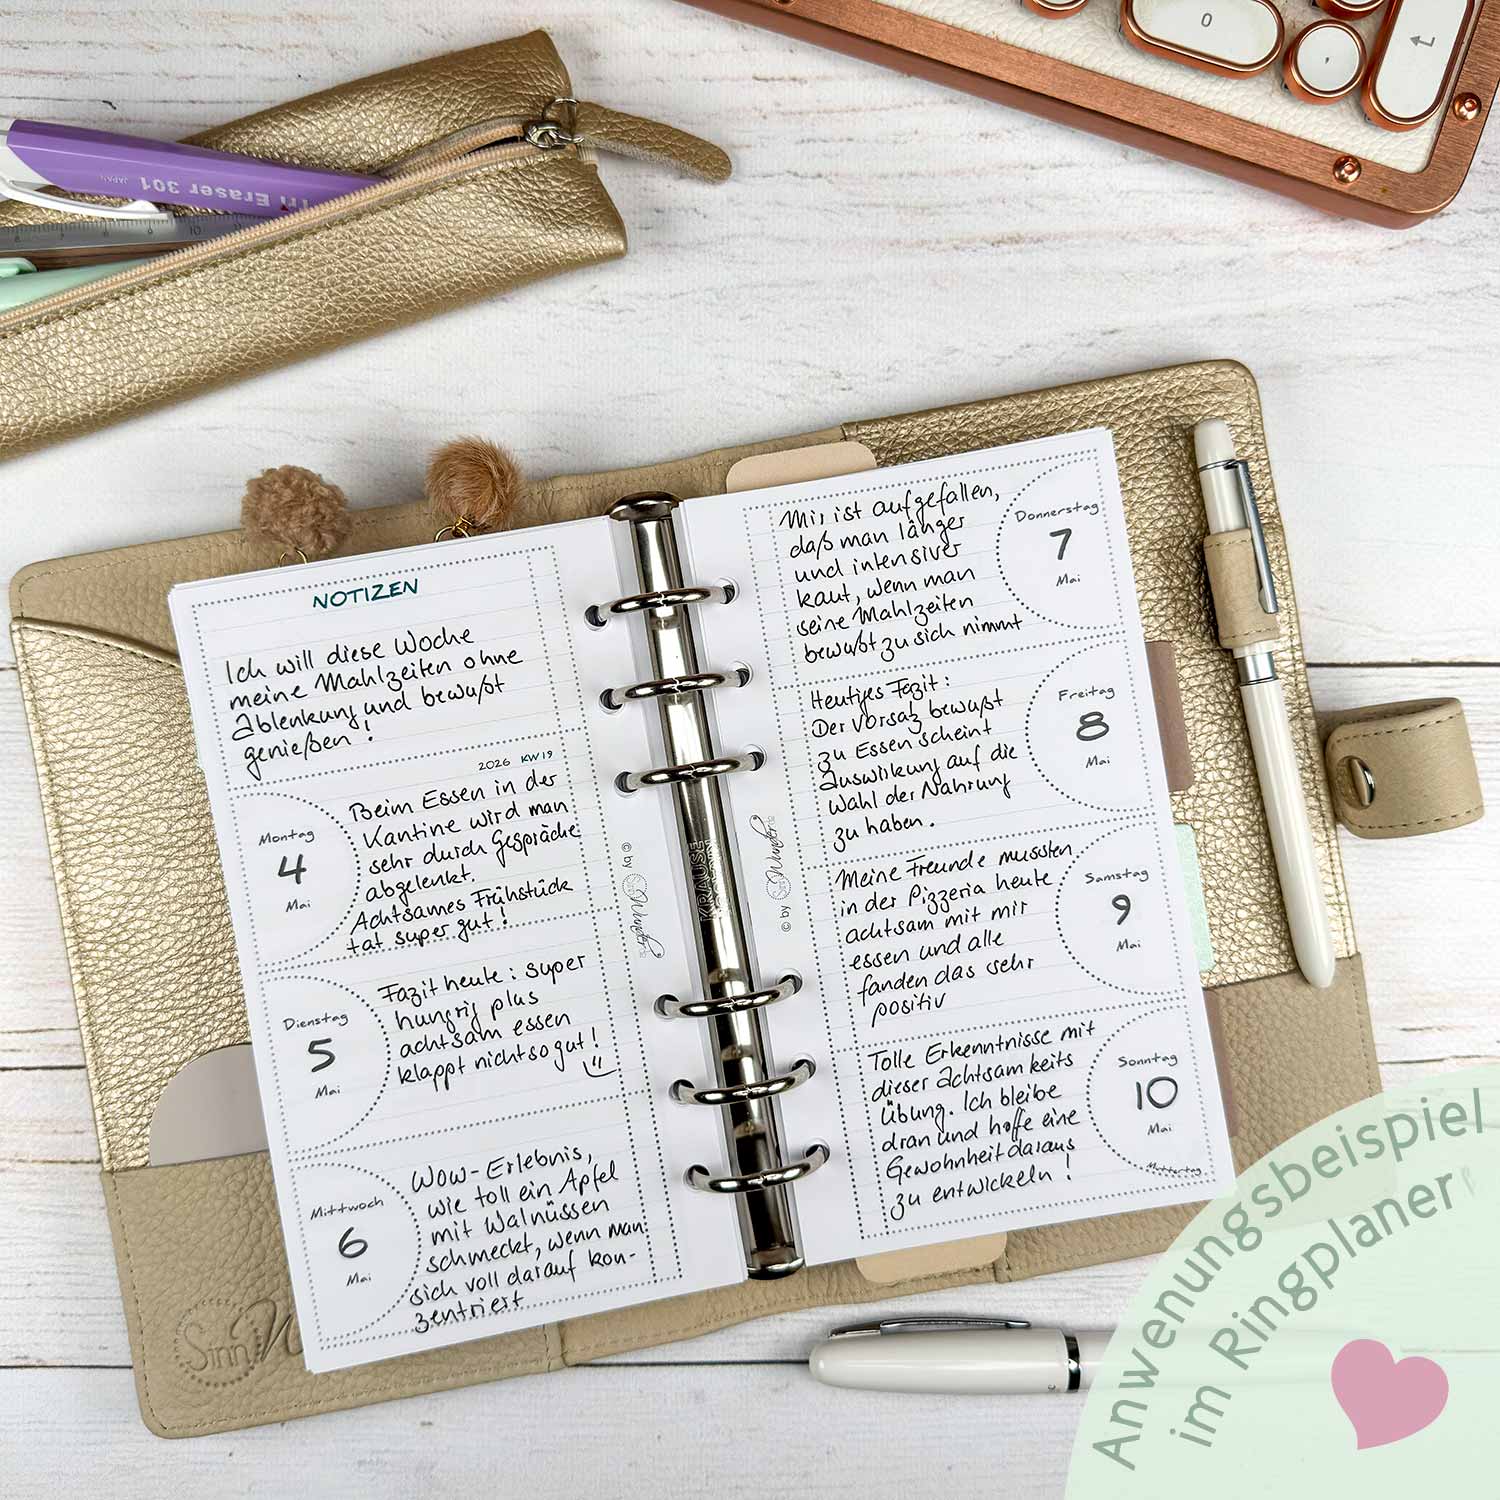 0
,
Tri Eraser 301
JAPAN
7 8 9 10
NOTIZEN
Ich will diese Woche
meine Mahlzeiten ohne
Ablenkung und bewußt
genießen!
2026 KW19
Montag
4
Mai
Beim Essen in der
Kantine wird man
sehr durch Gespräche
abgelenkt.
Achtsames Frühstück
tat super gut!
Dienstag
5
Mai
Fazit heute: super
hungrig plus
achtsam essen
klappt nicht so gut!
Mittwoch
6
Mai
Wow-Erlebnis,
wie toll ein Apfel
mit Walnüssen
schmeckt, wenn man
sich voll darauf kon-
zentriert
© by SinnWunder
KRAUSE
© by SinnWunder
Mir ist aufgefallen,
daß man länger
und intensiver
kaut, wenn man
seine Mahlzeiten
bewußt zu sich nimmt
Donnerstag
7
Mai
Heutiges Fazit:
Der Vorsatz bewußt
zu Essen scheint
Auswirkung auf die
Wahl der Nahrung
zu haben.
Freitag
8
Mai
Meine Freunde mussten
in der Pizzeria heute
achtsam mit mir
essen und alle
fanden das sehr
positiv
Samstag
9
Mai
Tolle Erkenntnisse mit
dieser Achtsamkeits
Übung. Ich bleibe
dran und hoffe eine
Gewohnheit daraus
zu entwickeln!
Sonntag
10
Mai
Muttertag
Sinn
Anwenungsbeispiel
im Ringplaner